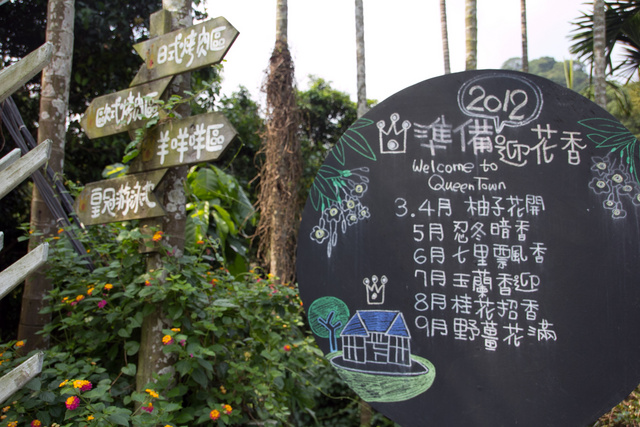 日式烤肉區
歐式烤肉區
羊咩咩區
皇冠游泳
2012
準備迎花香
Welcome to
QueenTown
3.4月 柚子花開
5月 忍冬暗香
6月 七里飄風香
7月 玉蘭香迎
8月 桂花招香
9月 野薑花滿